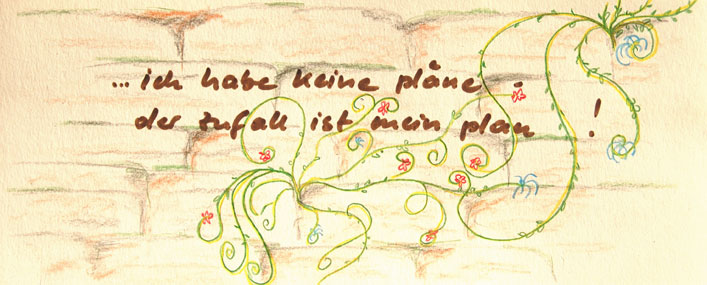 ... ich habe keine pläne -
der zufall ist mein plan !